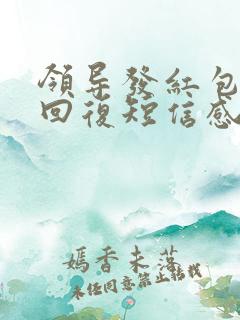 領导發紅包
回復短信感
嫣香未落
未经同意禁止转载